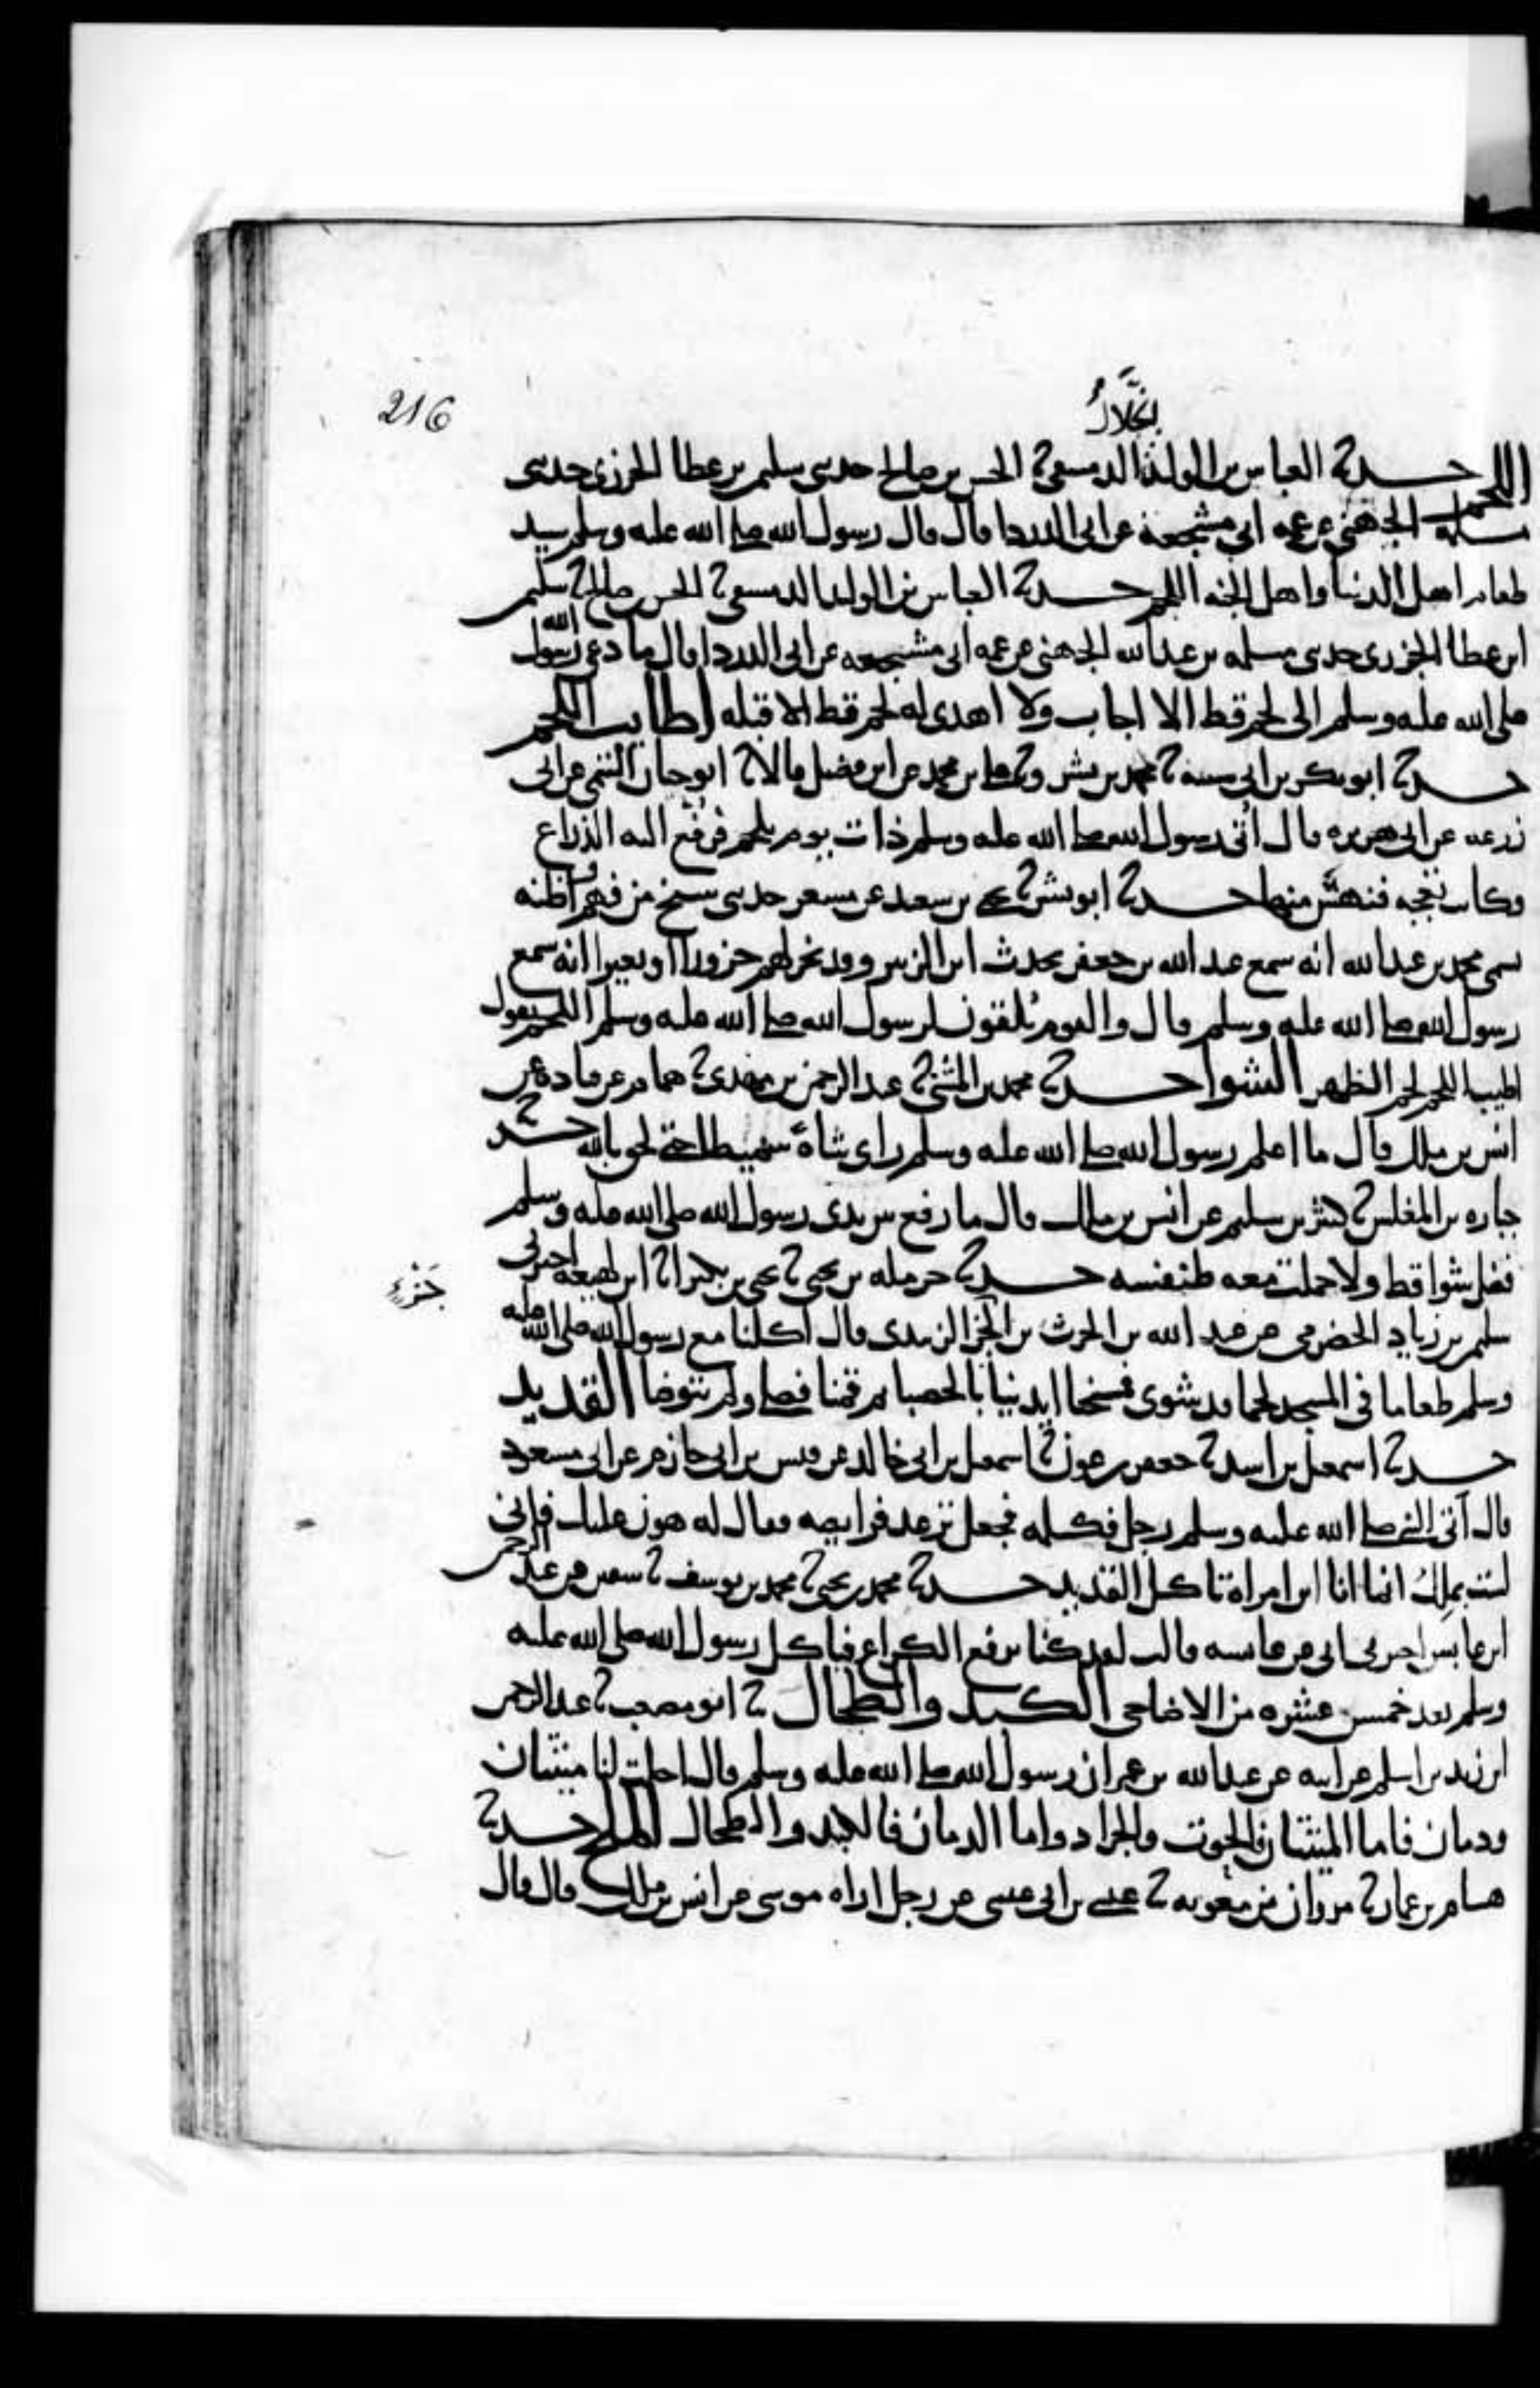 216
الخلال
اللحم حدثنا العباس بن الوليد الدمشقي ثنا يحيى بن صالح حدثني سليمن بن عطا الجزري حدثني
مسلمة الجهني عن عمه ابي مشجعة عن ابي الدردا قال قال رسول الله صلى الله عليه وسلم سيد
طعام اهل الدنيا واهل الجنه اللحم حدثنا العباس بن الوليد الدمشقي ثنا يحيى بن صالح ثنا سليمن
ابن عطا الجزري حدثني مسلمه بن عبد الله الجهني عن عمه ابي مشجعه عن ابي الدردا قال ما دعي رسول الله
صلى الله عليه وسلم الى لحم قط الا اجاب ولا اهدى له لحم قط الا قبله اطايب اللحم
حدثنا ابو بكر بن ابي شيبة ثنا محمد بن بشر وثنا علي بن محمد عن ابن فضيل قالا ثنا ابو حيان التيمي عن ابي
زرعه عن ابي هريره قال اتي رسول الله صلى الله عليه وسلم ذات يوم بلحم فرفع اليه الذراع
وكانت تعجبه فنهش منها حدثنا ابو بشر ثنا يحيى بن سعيد عن مسعر حدثني شيخ من فهم اظنه
يسمى محمد بن عبد الله انه سمع عبد الله بن جعفر يحدث ابن الزبير وقد نحر لهم جزورا او بعيرا انه سمع
رسول الله صلى الله عليه وسلم قال والقوم يلقون لرسول الله صلى الله عليه وسلم اللحم يقول
اطيب اللحم لحم الظهر الشوا حدثنا محمد بن المثنى ثنا عبد الرحمن بن مهدي ثنا همام عن قتادة عن
انس بن ملك قال ما اعلم رسول الله صلى الله عليه وسلم راى شاة سميطا حتى لحق بالله حدثنا
جباره بن المغلس ثنا كثير بن سليم عن انس بن مالك قال ما رفع من بدي رسول الله صلى الله عليه وسلم
فضل شوا قط ولا حملت معه طنفسه حدثنا حرمله بن يحيى ثنا يحيى بن بكير انا ابن لهيعه اخبرني
جزء
سليمن بن زياد الحضرمي عن عبد الله بن الحرث بن الجز الزبيدي قال اكلنا مع رسول الله صلى الله عليه
وسلم طعاما في المسجد لحما قد شوى فمسحنا ايدينا بالحصبا ثم قمنا فصلى ولم نتوضا القديد
حدثنا اسمعيل بن اسد ثنا جعفر بن عون ثنا اسمعيل بن ابي خالد عن قيس بن ابي حازم عن ابي مسعود
قال اتى النبي صلى الله عليه وسلم رجل فكلمه فجعل ترعد فرايصه فقال له هون عليك فاني
لست بملك انما انا ابن امراة تاكل القديد حدثنا محمد بن يحيى ثنا محمد بن يوسف ثنا سفين عن عبد الرحمن
ابن عابس اخبرني ابي عن عايشه قالت لقد كنا نرفع الكراع فياكل رسول الله صلى الله عليه
وسلم بعد خمس عشره من الاضاحي الكبد والطحال ثنا ابو مصعب ثنا عبد الرحمن
ابن زيد بن اسلم عن ابيه عن عبد الله بن عمر ان رسول الله صلى الله عليه وسلم قال احلت لنا ميتتان
ودمان فاما الميتتان فالحوت والجراد واما الدمان فالكبد والطحال الملح حدثنا
هشام بن عمار ثنا مروان بن معويه ثنا عيسى بن ابي عيسى عن رجل اراه موسى عن انس بن ملك قال قال